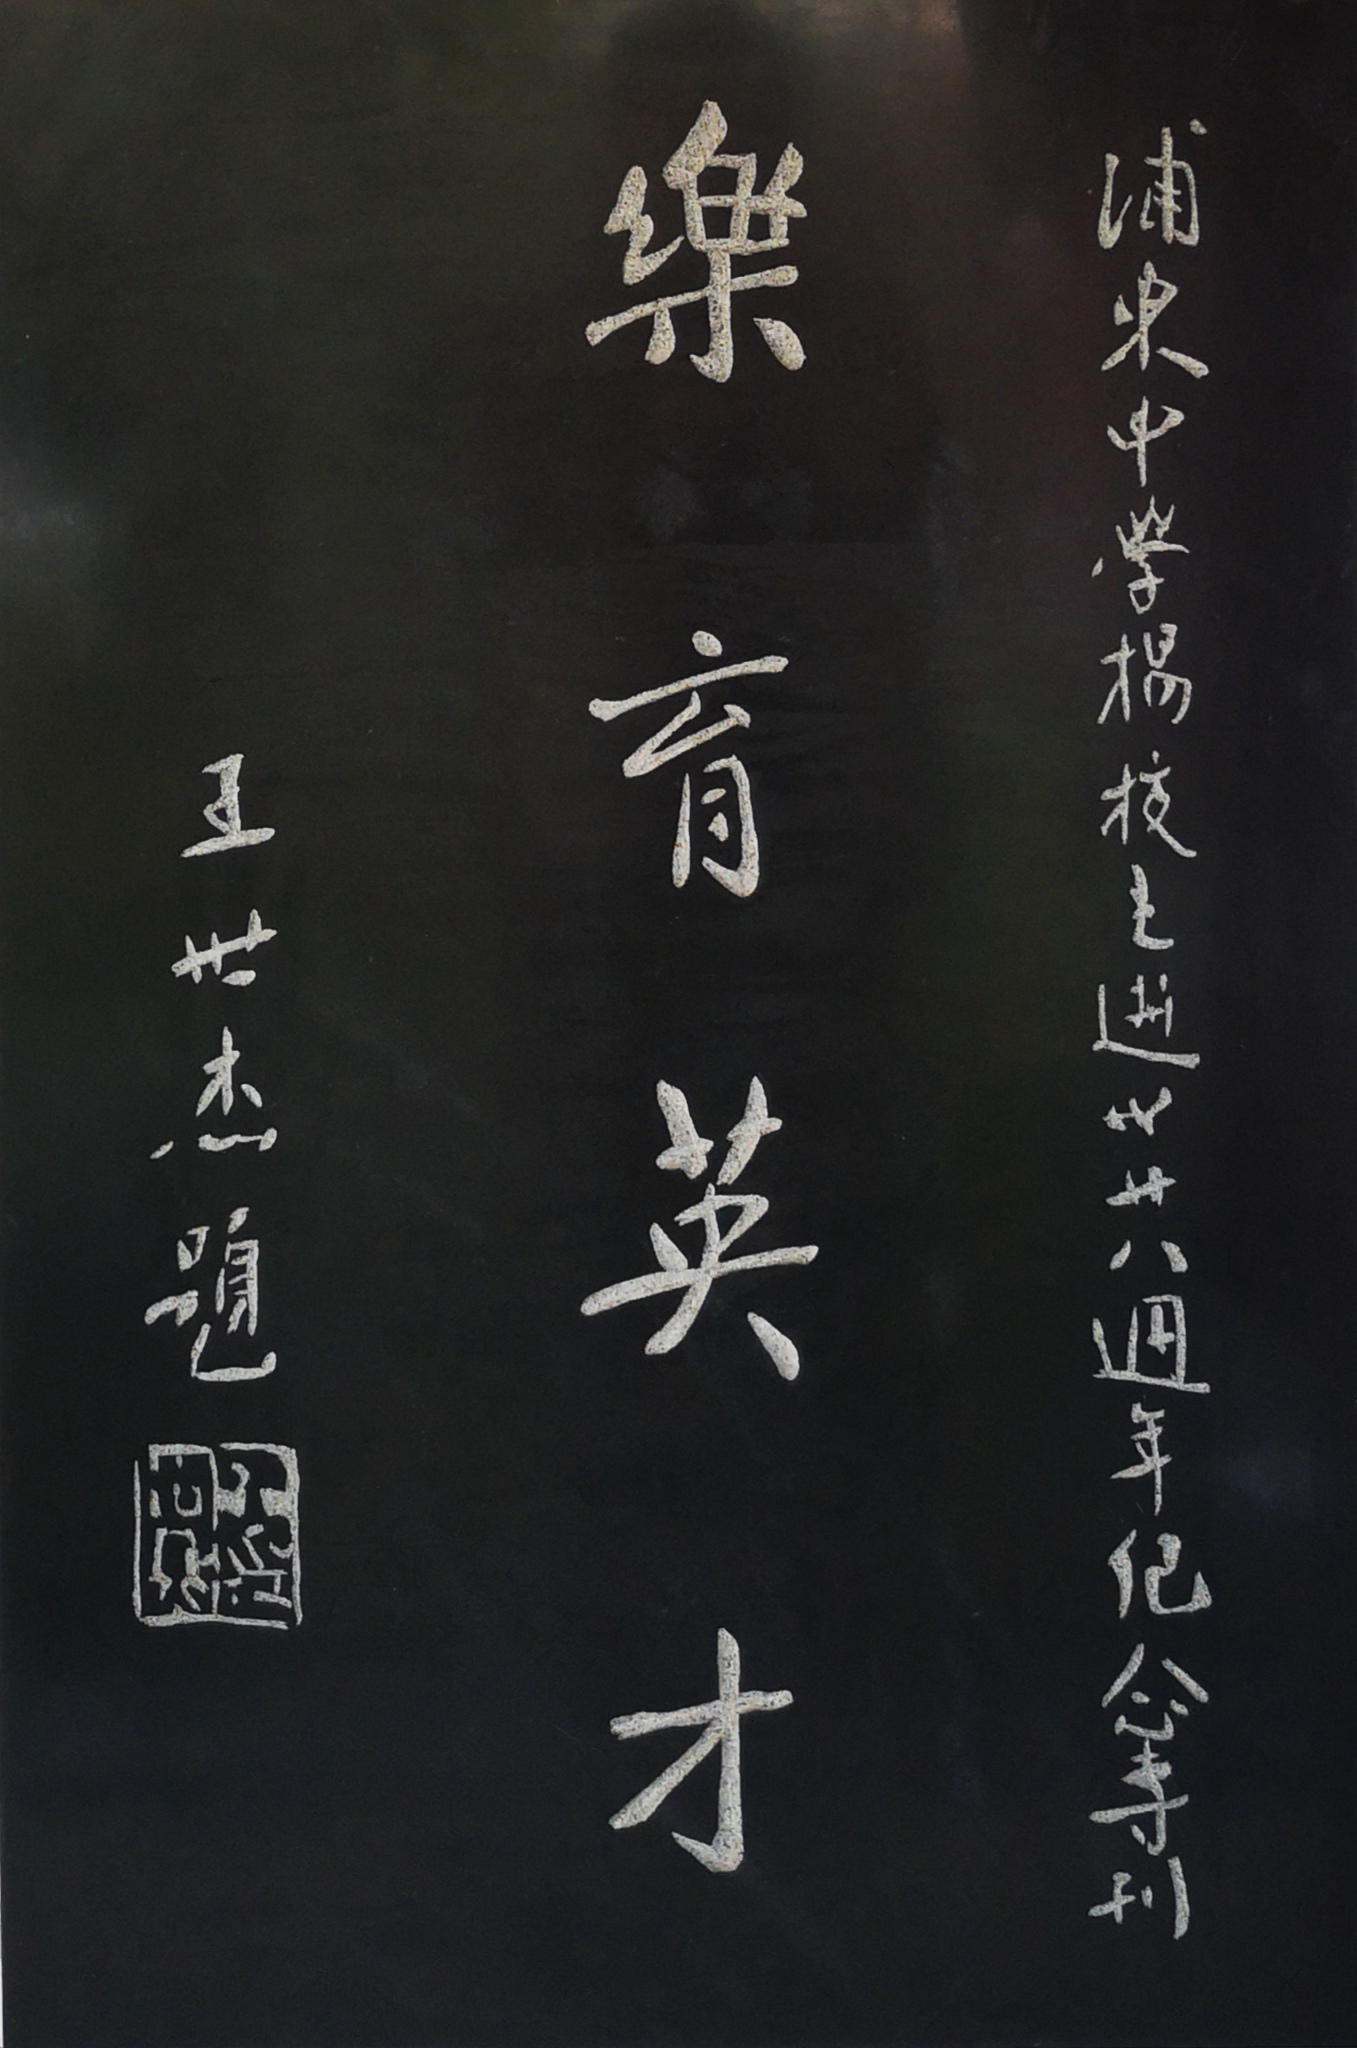 浦東中學楊校主逝世廿八週年紀念專刊
樂育英才
王世杰題